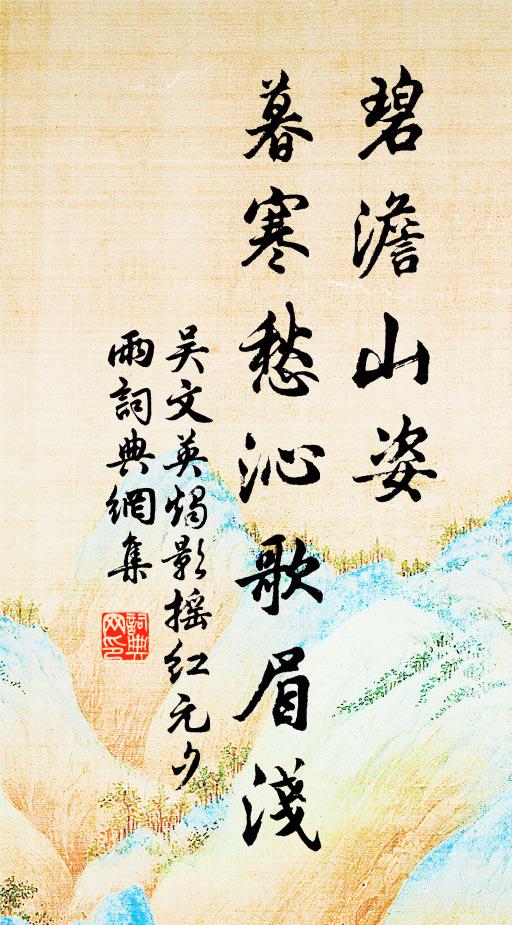 碧澹山姿
暮寒愁沁歌眉淺
吴文英燭影摇红元夕
雨詞典網集
詞典
网印